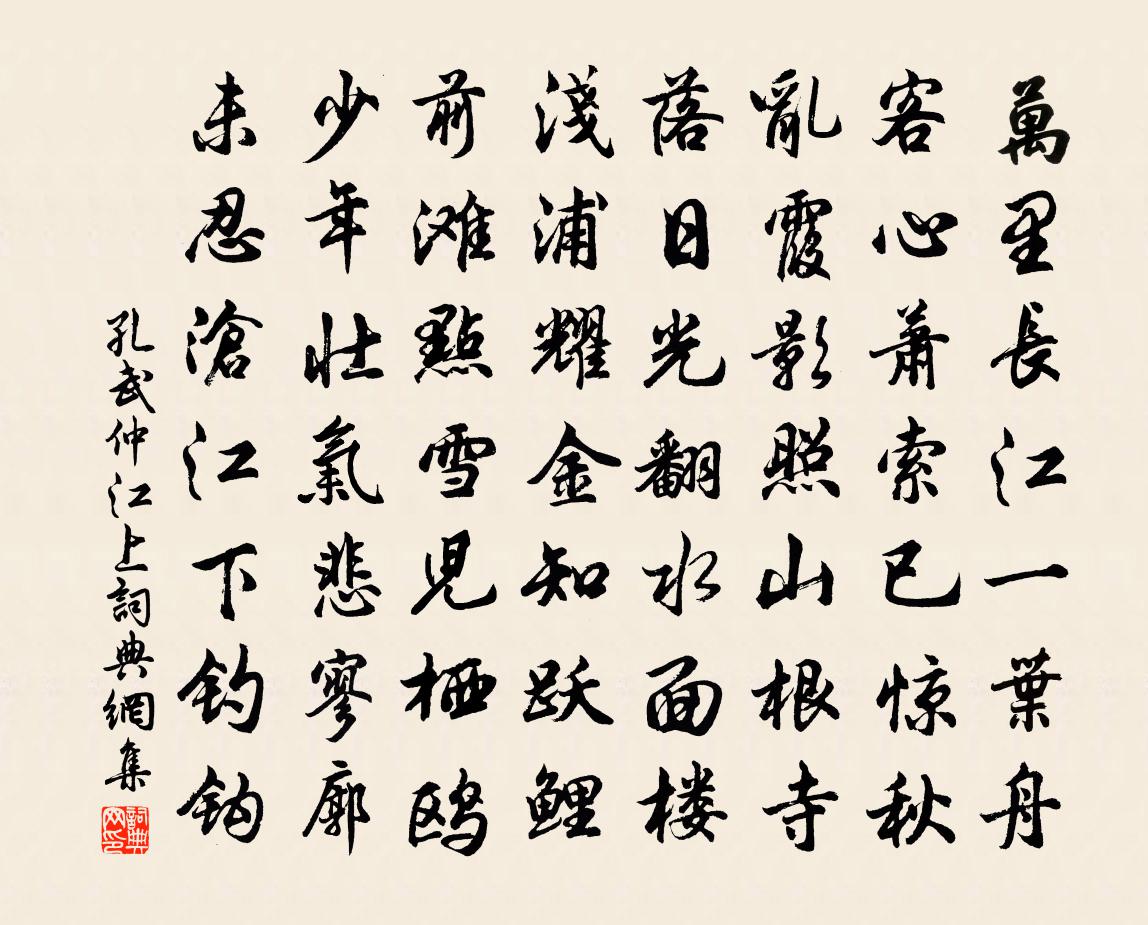 萬里長江一葉舟
客心蕭索已惊秋
亂霞影照山根寺
落日光翻水面楼
淺浦耀金知跃鯉
前滩點雪見栖鸥
少年壯氣悲寥廓
未忍滄江下釣鈎
孔武仲江上詞典網集
詞典网印